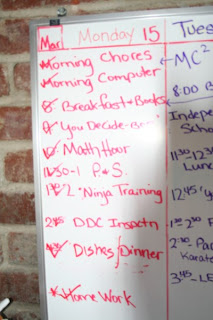 Mar Monday 15 Tues
Morning Chores MC²
Morning Computer
8 Breakfast & Books 8:00 B
9 "You Decide-
10 Math Hour Schoo
11:30-1 P.&S. 11:30-12:3
Lunc
1-2 "Ninja Training 12:45 "y
2:45 DDC Inspctn 1:30-2:30 P
Dishes/Dinner 2:30 Pac
Karate
3:45-L
*Home Work